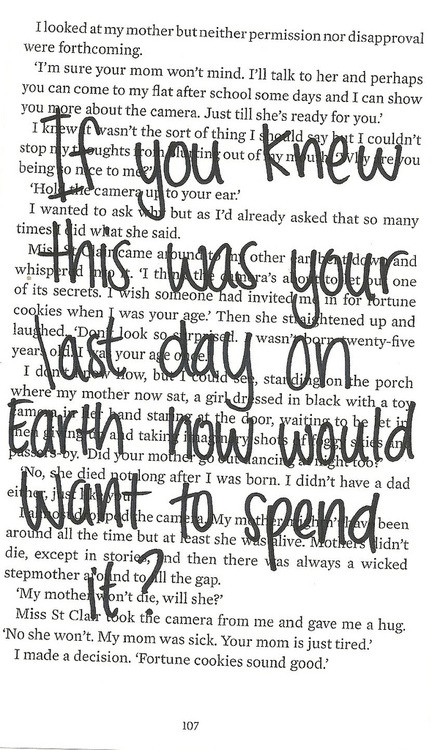 I looked at my mother but neither permission nor disapproval
were forthcoming.
'I'm sure your mom won't mind. I'll talk to her and perhaps
you can come to my flat after school some days and I can show
you more about the camera. Just till she's ready for you.'
I knew it wasn't the sort of thing I should say but I couldn't
stop my thoughts from blurting out of my mouth. 'Why are you
being so nice to me?'
'Hold the camera up to your ear.'
I wanted to ask why but as I'd already asked that so many
times I did what she said.
Miss St Clair came around to my other ear, bent down and
whispered into it. 'I think the camera's about to let out one
of its secrets. I wish someone had invited me in for fortune
cookies when I was your age.' Then she straightened up and
laughed. 'Don't look so surprised. I wasn't born twenty-five
years old. I was your age once.'
I don't know how, but I could see, standing on the porch
where my mother now sat, a girl dressed in black with a toy
camera in her hand staring at the door, waiting to be let in
then giving up and taking imaginary shots of foggy skies and
passers-by. 'Did your mother go out dancing at night too?'
'No, she died not long after I was born. I didn't have a dad
either, just like you.'
I almost dropped the camera. My mother mightn't have been
around all the time but at least she was alive. Mothers didn't
die, except in stories, and then there was always a wicked
stepmother around to fill the gap.
'My mother won't die, will she?'
Miss St Clair took the camera from me and gave me a hug.
'No she won't. My mom was sick. Your mom is just tired.'
I made a decision. 'Fortune cookies sound good.'
107
If you knew
this was your
last day on
Earth how would
want to spend
it?